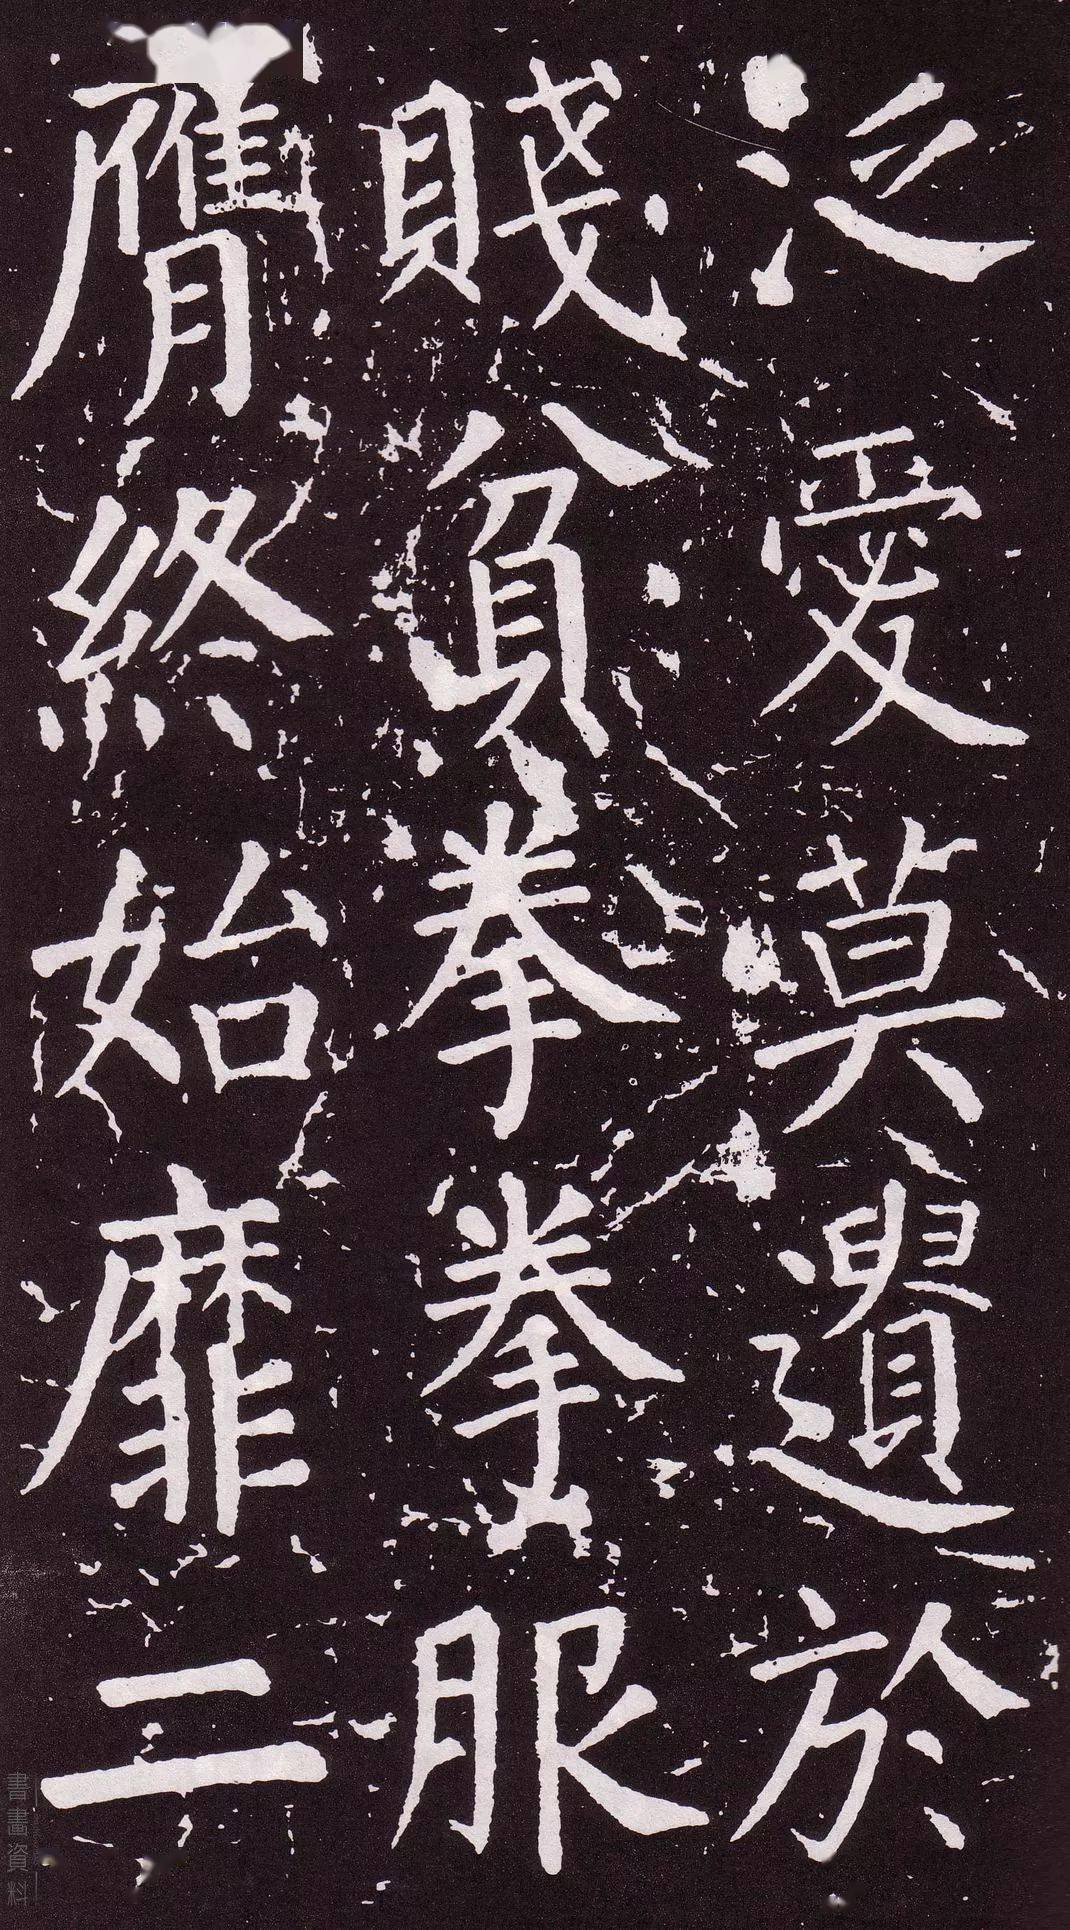 泛愛莫遺於
賤貟拳拳服
膺終始靡二
書畫資料